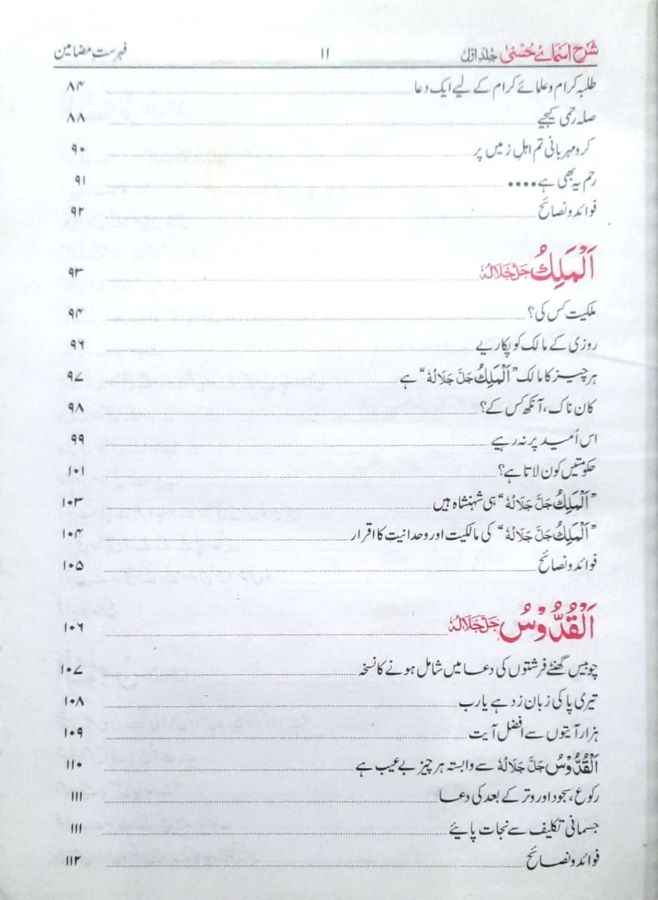 شرح اسمائے حسنیٰ جلد اول ۱۱ فہرست مضامین
طلبہ کرام و علمائے کرام کے لیے ایک دعا ۸۴
صلہ رحمی کیجیے ۸۸
کرو مہربانی تم اہل زمیں پر ۹۰
رحم یہ بھی ہے.... ۹۱
فوائد و نصائح ۹۲
اَلْمَلِكُ جَلَّ جَلَالُهٗ ۹۳
ملکیت کس کی؟ ۹۴
روزی کے مالک کو پکاریے ۹۶
ہر چیز کا مالک ”اَلْمَلِكُ جَلَّ جَلَالُهٗ“ ہے ۹۷
کان ناک، آنکھ کس کے؟ ۹۸
اس اُمید پر نہ رہیے ۹۹
حکومتیں کون لاتا ہے؟ ۱۰۱
”اَلْمَلِكُ جَلَّ جَلَالُهٗ“ ہی شہنشاہ ہیں ۱۰۳
”اَلْمَلِكُ جَلَّ جَلَالُهٗ“ کی مالکیت اور وحدانیت کا اقرار ۱۰۴
فوائد و نصائح ۱۰۵
اَلْقُدُّوْسُ جَلَّ جَلَالُهٗ ۱۰۶
چوبیس گھنٹے فرشتوں کی دعا میں شامل ہونے کا نسخہ ۱۰۷
تیری پاکی زبان زد ہے یارب ۱۰۸
ہزار آیتوں سے افضل آیت ۱۰۹
اَلْقُدُّوْسُ جَلَّ جَلَالُهٗ سے وابستہ ہر چیز بے عیب ہے ۱۱۰
رکوع، سجود اور وتر کے بعد کی دعا ۱۱۱
جسمانی تکلیف سے نجات پایئے ۱۱۱
فوائد و نصائح ۱۱۲